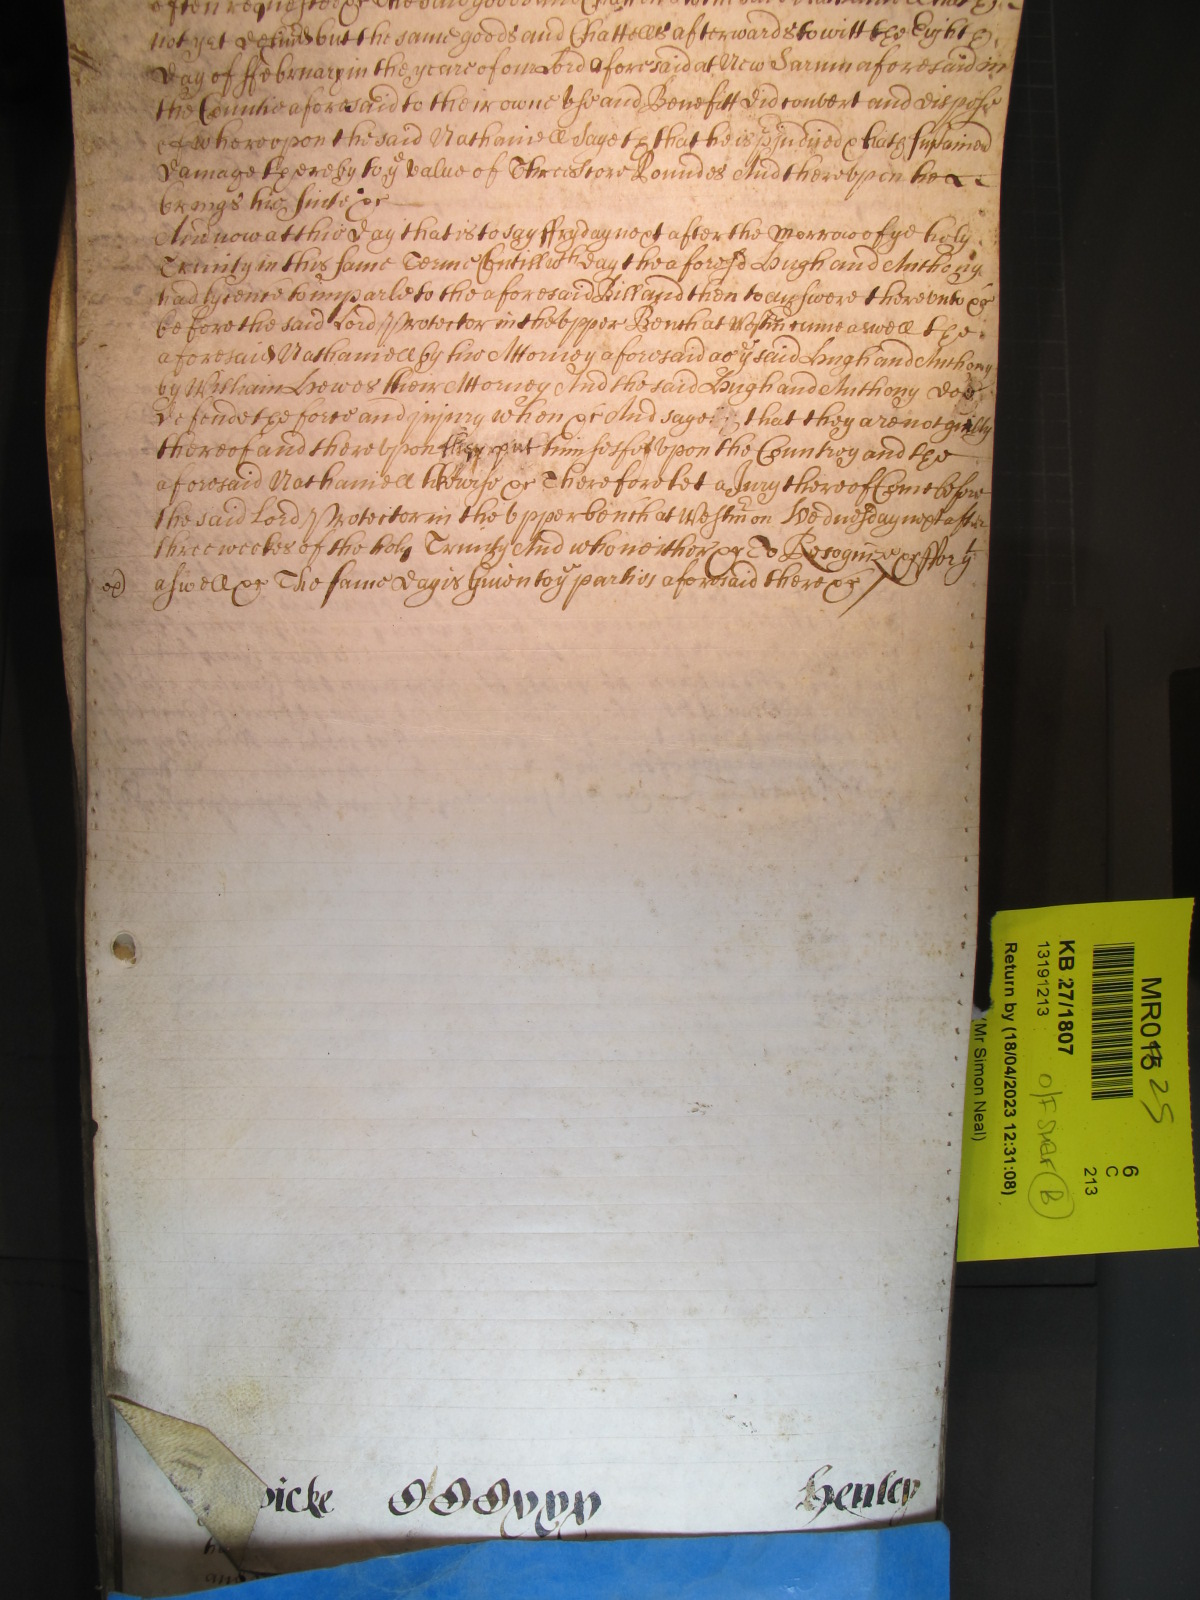 often requested &c the said goods and Chattells to him the said Nathaniell hath
not yet delivred but the same goods and Chattells afterwards to witt the Eight
day of ffebruary in the yeare of our Lord aforesaid at New Sarum aforesaid in
the Countie aforesaid to their owne vse and Benefitt did convert and dispose
whereupon the said Nathaniell Sayeth that he is Injuried & hath sustained
damage thereby to ye value of Threescore Poundes And therevpon he
brings his suite &c
And now at this day that is to say ffryday next after the morrow of ye holy
Trinity in this same Terme Vntill wch day the aforesd Hugh and Anthony
had lycence to imparle to the aforesaid Bill and then to answere therevnto &c
before the said Lord Protector in the vpper Bench at Westm came aswell the
aforesaid Nathaniell by his Attorney aforesaid as ye said Hugh and Anthony
by William Hewes their Attorney And the said Hugh and Anthony doe
defende the force and injury when &c And saye that they are not guilty
thereof and therevpon they put themselves vpon the Countrey and the
aforesaid Nathaniell likewise &c Therefore let a Jury thereof Come before
the said Lord Protector in the vpper bench at Westm on Wednesday next after
three weekes of the holy Trinity And who neither &c To Recognize &c ffor yt
aswell &c The same day is Given to ye parties aforesaid there &c
wicke
Henley
MR015 25
KB 27/1807
13191213
Return by (18/04/2023 12:31:08)
(Mr Simon Neal)
6
C
213
B